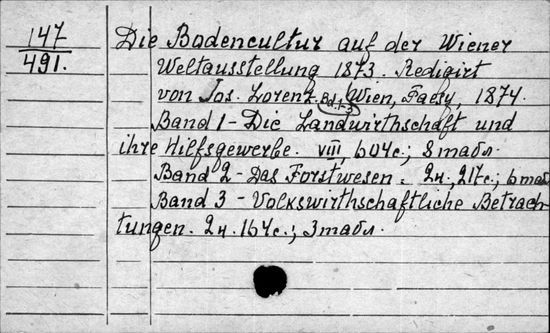 147
491.
Die Bodencultur auf der Wiener
Weltausstellung 1873. Redigirt
von Jos. Lorenz. Bd. 1-3 Wien, Faesy, 1874.
Band 1 - Die Landwirthschaft und
ihre Hilfsgewerbe. VIII 604 с.; 8 табл.
Band 2 - Das Forstwesen. 2н., 217с.; 6 таб
Band 3 - Volkswirthschaftliche Betrach-
tungen. 2н. 164с.; 3 табл.